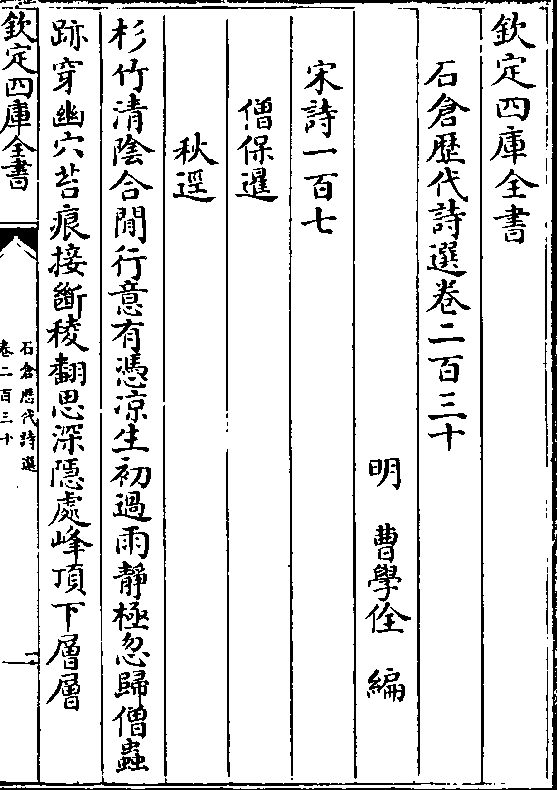 欽定四庫全書
石倉歴代詩選卷二百三十
明　曹學佺　編
宋詩一百七
僧保暹
秋逕
杉竹清陰合閒行意有憑凉生初過雨靜極忽歸僧蟲
跡穿幽穴苔痕接斷稜翻思深隱處峰頂下層層
欽定四庫全書
石倉歴代詩選
卷二百三十
一